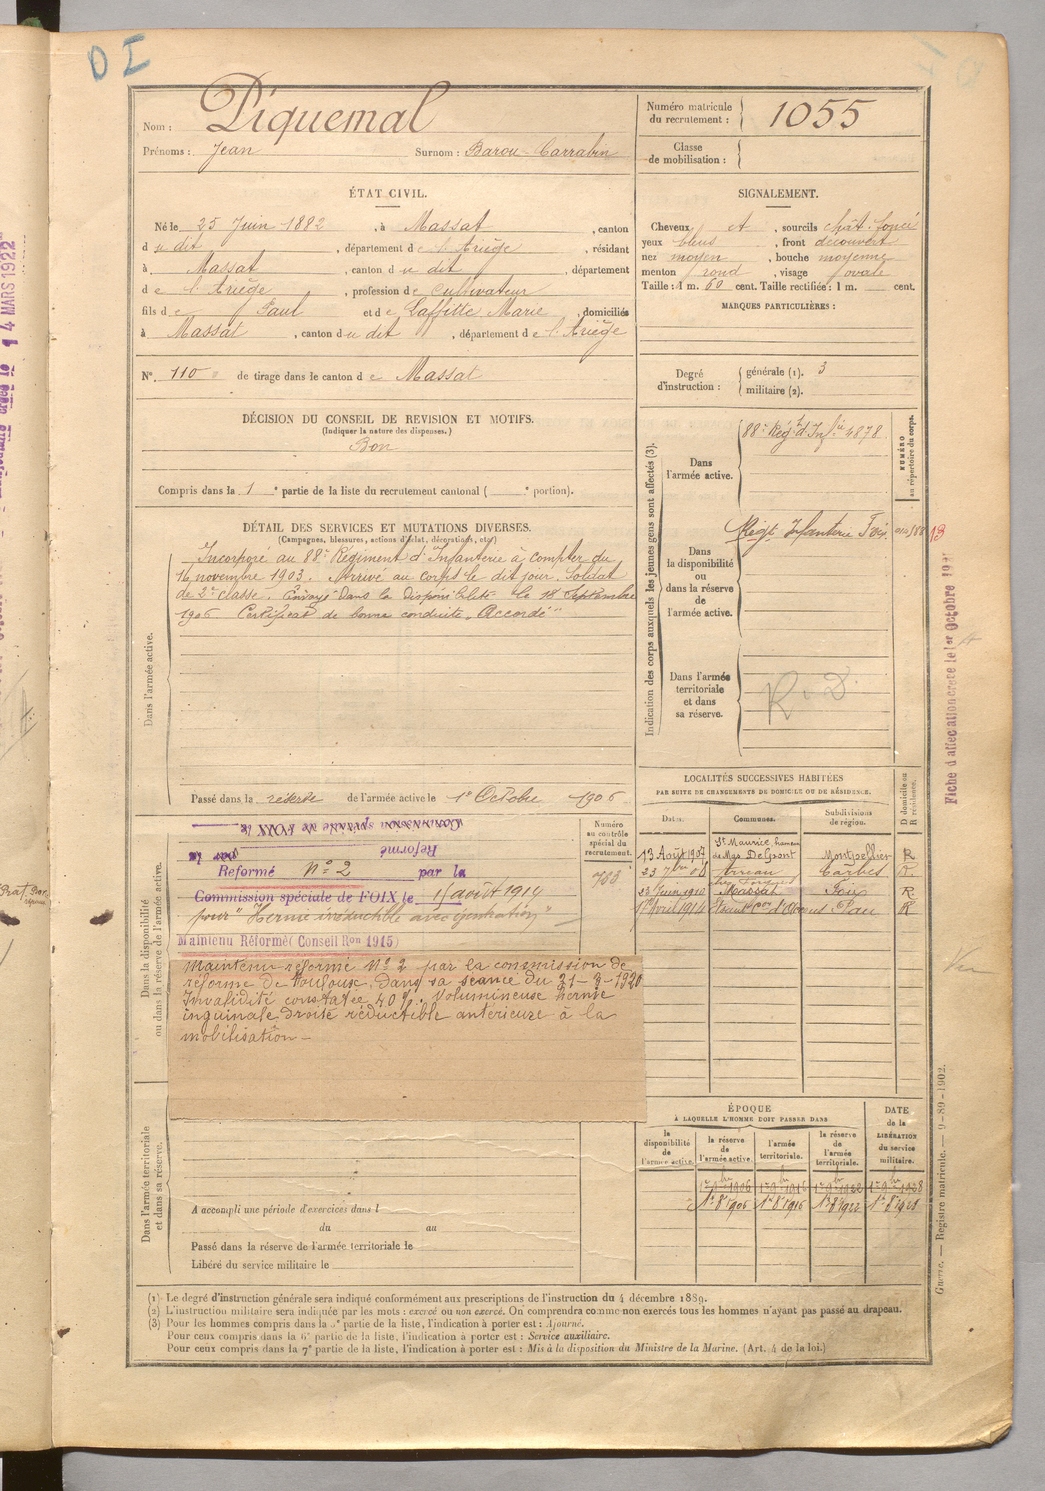 D I
Nom : Piquemal
Prénoms : Jean Surnom : Barou-Carrabin
Numéro matricule du recrutement : 1055
Classe de mobilisation :
ÉTAT CIVIL.
Né le 25 Juin 1882, à Massat, canton
d u dit, département d e l'Ariège, résidant
à Massat, canton d u dit, département
d e l'Ariège, profession d e Cultivateur
fils d e Paul et d e Laffitte Marie, domiciliés
à Massat, canton d u dit, département d e l'Ariège
N° 110 de tirage dans le canton d e Massat
SIGNALEMENT.
Cheveux et, sourcils chât. foncé
yeux bleus, front découvert
nez moyen, bouche moyenne
menton rond, visage ovale
Taille : 1 m. 60 cent. Taille rectifiée : 1 m. cent.
MARQUES PARTICULIÈRES :
Degré d'instruction : générale (1). 3
militaire (2).
DÉCISION DU CONSEIL DE REVISION ET MOTIFS.
(Indiquer la nature des dispenses.)
Bon
Compris dans la 1e partie de la liste du recrutement cantonal ( e portion).
DÉTAIL DES SERVICES ET MUTATIONS DIVERSES.
(Campagnes, blessures, actions d'éclat, décorations, etc.)
Dans l'armée active.
Incorporé au 88e Régiment d'Infanterie à compter du
16 novembre 1903. Arrivé au corps le dit jour. Soldat
de 2e classe. Envoyé dans la disponibilité le 18 Septembre
1906 Certificat de bonne conduite "Accordé"
Passé dans la réserve de l'armée active le 1er Octobre 1906
Indication des corps auxquels les jeunes gens sont affectés (3).
NUMÉRO au répertoire du corps.
Dans l'armée active.
88e Régt d'Infie 4878
Dans la disponibilité ou dans la réserve de l'armée active.
Régt Infanterie Foix
Dans l'armée territoriale et dans sa réserve.
R. D.
Fiche d'affectation créée le 1er Octobre
4 MARS 1922
Dans la disponibilité ou dans la réserve de l'armée active.
Numéro au contrôle spécial du recrutement.
Commission spéciale de FOIX le
Réformé par la
Réformé N° 2 par la
Commission spéciale de FOIX le 11 août 1914
pour "Hernie irréductible
Maintenu Réformé (Conseil Ron 1915)
Maintenu réformé N° 2 par la commission de
réforme de Toulouse, dans sa séance du 31-3-1920
Invalidité constatée 40%. Volumineuse hernie
inguinale droite réductible antérieure à la
mobilisation
LOCALITÉS SUCCESSIVES HABITÉES
PAR SUITE DE CHANGEMENTS DE DOMICILE OU DE RÉSIDENCE.
Dates. Communes. Subdivisions de région. D domicile ou R résidence.
13 Août 1907 St Maurice Montpellier R
Tarbes
Massat Foix R
Pau R
ÉPOQUE
À LAQUELLE L'HOMME DOIT PASSER DANS
la disponibilité de l'armée active. la réserve de l'armée active. l'armée territoriale. la réserve de l'armée territoriale. DATE de la LIBÉRATION du service militaire.
1er 9bre 1906 1er 9bre 1916 1er 9bre 1922 1er 9bre 1928
Dans l'armée territoriale et dans sa réserve.
A accompli une période d'exercices dans l
du au
Passé dans la réserve de l'armée territoriale le
Libéré du service militaire le
(1) Le degré d'instruction générale sera indiqué conformément aux prescriptions de l'instruction du 4 décembre 1889.
(2) L'instruction militaire sera indiquée par les mots : exercé ou non exercé. On comprendra comme non exercés tous les hommes n'ayant pas passé au drapeau.
(3) Pour les hommes compris dans la 5e partie de la liste, l'indication à porter est : Ajourné.
Pour ceux compris dans la 6e partie de la liste, l'indication à porter est : Service auxiliaire.
Pour ceux compris dans la 7e partie de la liste, l'indication à porter est : Mis à la disposition du Ministre de la Marine. (Art. 4 de la loi.)
Guerre. — Registre matricule. — 9-89-1902.